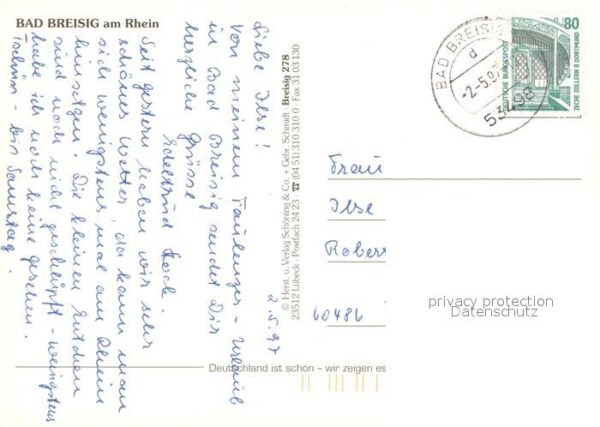 BAD BREISIG am Rhein
Liebe Ilse!
Von meinem Faulenzer-Urlaub
in Bad Breisig sendet Dir
herzliche Grüsse
Edeltrud
Seit gestern haben wir sehr
schönes Wetter, da kann man
sich wenigstens mal am Rhein
hinsetzen. Die kleinen Entchen
sind noch nicht geschlüpft - wenigstens
habe ich noch keine gesehen.
Tschüs - bis Samstag.
2.5.97
© Herst. u. Verlag Schöning & Co. + Gebr. Schmidt Breisig 278
23512 Lübeck - Postfach 24 23 ☎ (04 51) 310 310 0 Fax 31 03 130
BAD BREISIG
d
-2-5.9
53498
80
DEUTSCHE BUNDESPOST
ZECHE ZOLLERN II DORTMUND
Frau
Ilse
Robers
60486
privacy protection
Datenschutz
Deutschland ist schön – wir zeigen es